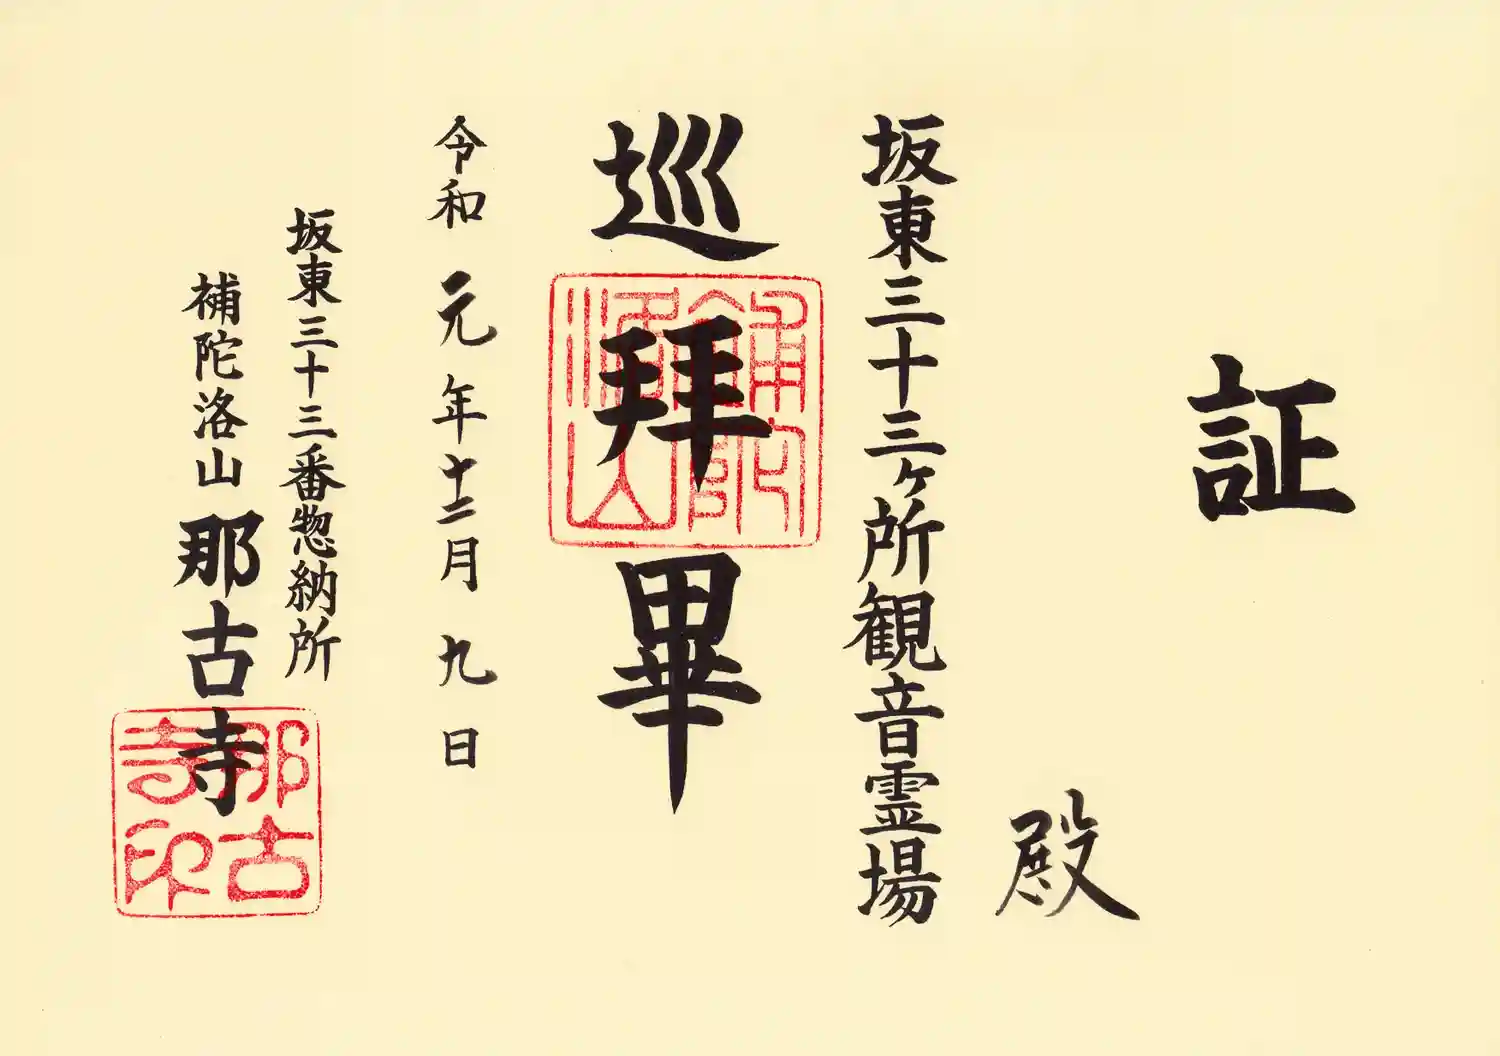 証
殿
坂東三十三ヶ所観音霊場
巡拝畢
令和元年十二月九日
坂東三十三番惣納所
補陀洛山那古寺
補陀洛山
那古寺印